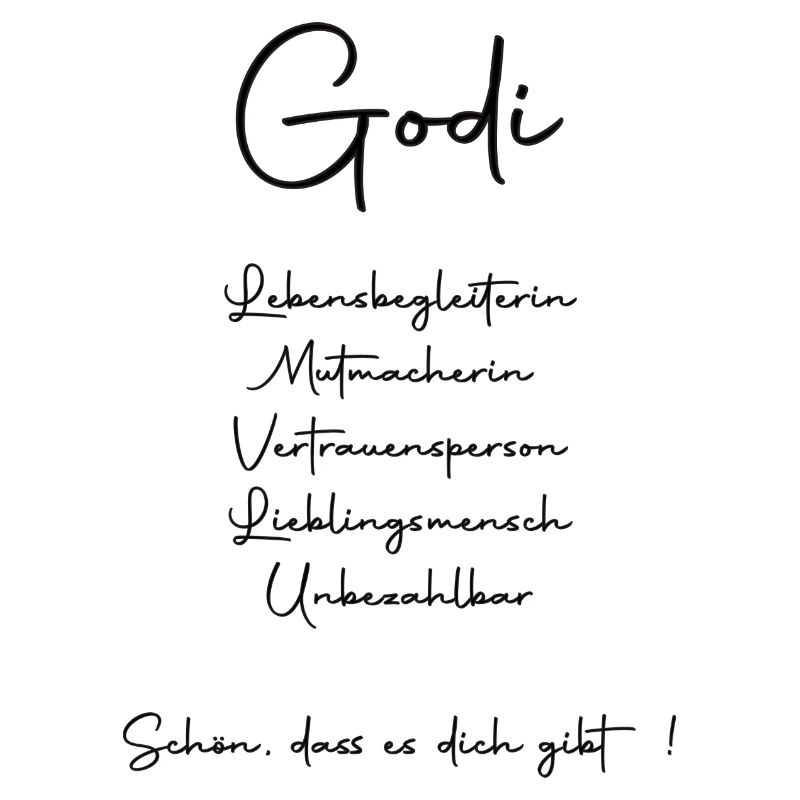 Godi
Lebensbegleiterin
Mutmacherin
Vertrauensperson
Lieblingsmensch
Unbezahlbar
Schön, dass es dich gibt !